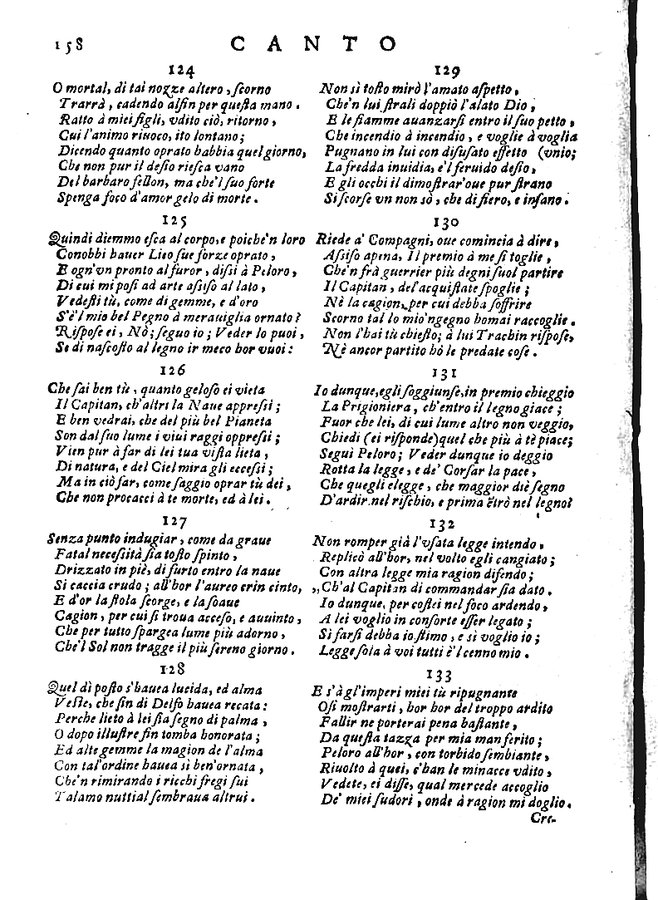 158 CANTO
124
O mortal, di tai nozze altero, ſcorno
Trarrà, cadendo alfin per queſta mano.
Ratto à miei figli, vdito ciò, ritorno,
Cui l'animo riuoco, ito lontano;
Dicendo quanto oprato habbia quel giorno,
Che non pur il deſio rieſca vano
Del barbaro fellon, ma che'l ſuo forte
Spenga foco d'amor gelo di morte.
125
Quindi diemmo eſca al corpo, e poiche'n loro
Conobbi hauer Lieo ſue forze oprato,
E ogn'vn pronto al furor, diſſi à Peloro,
Di cui mi poſi ad arte aſſiſo al lato,
Vedeſti tù, come di gemme, e d'oro
S'è'l mio bel Pegno à merauiglia ornato?
Riſpoſe ei, Nò; ſeguo io; Veder lo puoi,
Se di naſcoſto al legno ir meco hor vuoi:
126
Che ſai ben tù, quanto geloſo ei vieta
Il Capitan, ch'altri la Naue appreſſi;
E ben vedrai, che del più bel Pianeta
Son dal ſuo lume i viui raggi oppreſſi;
Vien pur à far di lei tua viſta lieta,
Di natura, e del Ciel mira gli ecceſſi;
Ma in ciò far, come ſaggio oprar tù dei,
Che non procacci à te morte, ed à lei.
127
Senza punto indugiar, come da graue
Fatal neceſſità ſia toſto ſpinto,
Drizzato in piè, di furto entro la naue
Si caccia crudo; all'hor l'aureo crin cinto,
E d'or la ſtola ſcorge, e la ſoaue
Cagion, per cui ſi troua acceſo, e auuinto,
Che per tutto ſpargea lume più adorno,
Che'l Sol non tragge il più ſereno giorno.
128
Quel dì poſto s'hauea lucida, ed alma
Veſte, che fin di Delfo hauea recata:
Perche lieto à lei ſia ſegno di palma,
O dopo illuſtre fin tomba honorata;
Ed alte gemme la magion de l'alma
Con tal'ordine hauea sì ben'ornata,
Che'n rimirando i ricchi fregi ſui
Talamo nuttial ſembraua altrui.
129
Non sì toſto mirò l'amato aſpetto,
Che'n lui ſtrali doppiò l'alato Dio,
E le fiamme auanzarſi entro il ſuo petto,
Che incendio à incendio, e voglie à voglia
Pugnano in lui con diſuſato effetto (vnio;
La fredda inuidia, e'l feruido deſio,
E gli occhi il dimoſtrar'oue pur ſtrano
Si ſcorſe vn non sò, che di fiero, e inſano.
130
Riede a' Compagni, oue comincia à dire,
Aſſiſo apena, Il premio à me ſi toglie,
Che'n frà guerrier più degni ſuol partire
Il Capitan, de l'acquiſtate ſpoglie;
Nè la cagion, per cui debba ſoffrire
Scorno tal lo mio'ngegno homai raccoglie.
Non l'hai tù chieſto; à lui Trachin riſpoſe,
Nè ancor partito hò le predate coſe.
131
Io dunque, egli ſoggiunſe, in premio chieggio
La Prigioniera, ch'entro il legno giace;
Fuor che lei, di cui lume altro non veggio,
Chiedi (ei riſponde) quel che più à tè piace;
Seguì Peloro; Veder dunque io deggio
Rotta la legge, e de' Corſar la pace,
Che quegli elegge, che maggior diè ſegno
D'ardir nel riſchio, e prima ẽtrò nel legno?
132
Non romper già l'vſata legge intendo,
Replicò all'hor, nel volto egli cangiato;
Con altra legge mia ragion difendo;
„Ch'al Capitan di commandar ſia dato.
Io dunque, per coſtei nel foco ardendo,
A lei voglio in conſorte eſſer legato;
Sì farſi debba io ſtimo, e sì voglio io;
Legge ſola à voi tutti è'l cenno mio.
133
E s'à gl'imperi miei tù ripugnante
Oſi moſtrarti, hor hor del troppo ardito
Fallir ne porterai pena baſtante,
Da queſta tazza per mia man ferito;
Peloro all'hor, con torbido ſembiante,
Riuolto à quei, c'han le minacce vdito,
Vedete, ei diſſe, qual mercede accoglio
De' miei ſudori, onde à ragion mi doglio.
Cre-